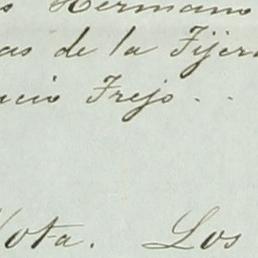 s Hermano
as de la Fijer
ucio Frejo . .
Nota. Los